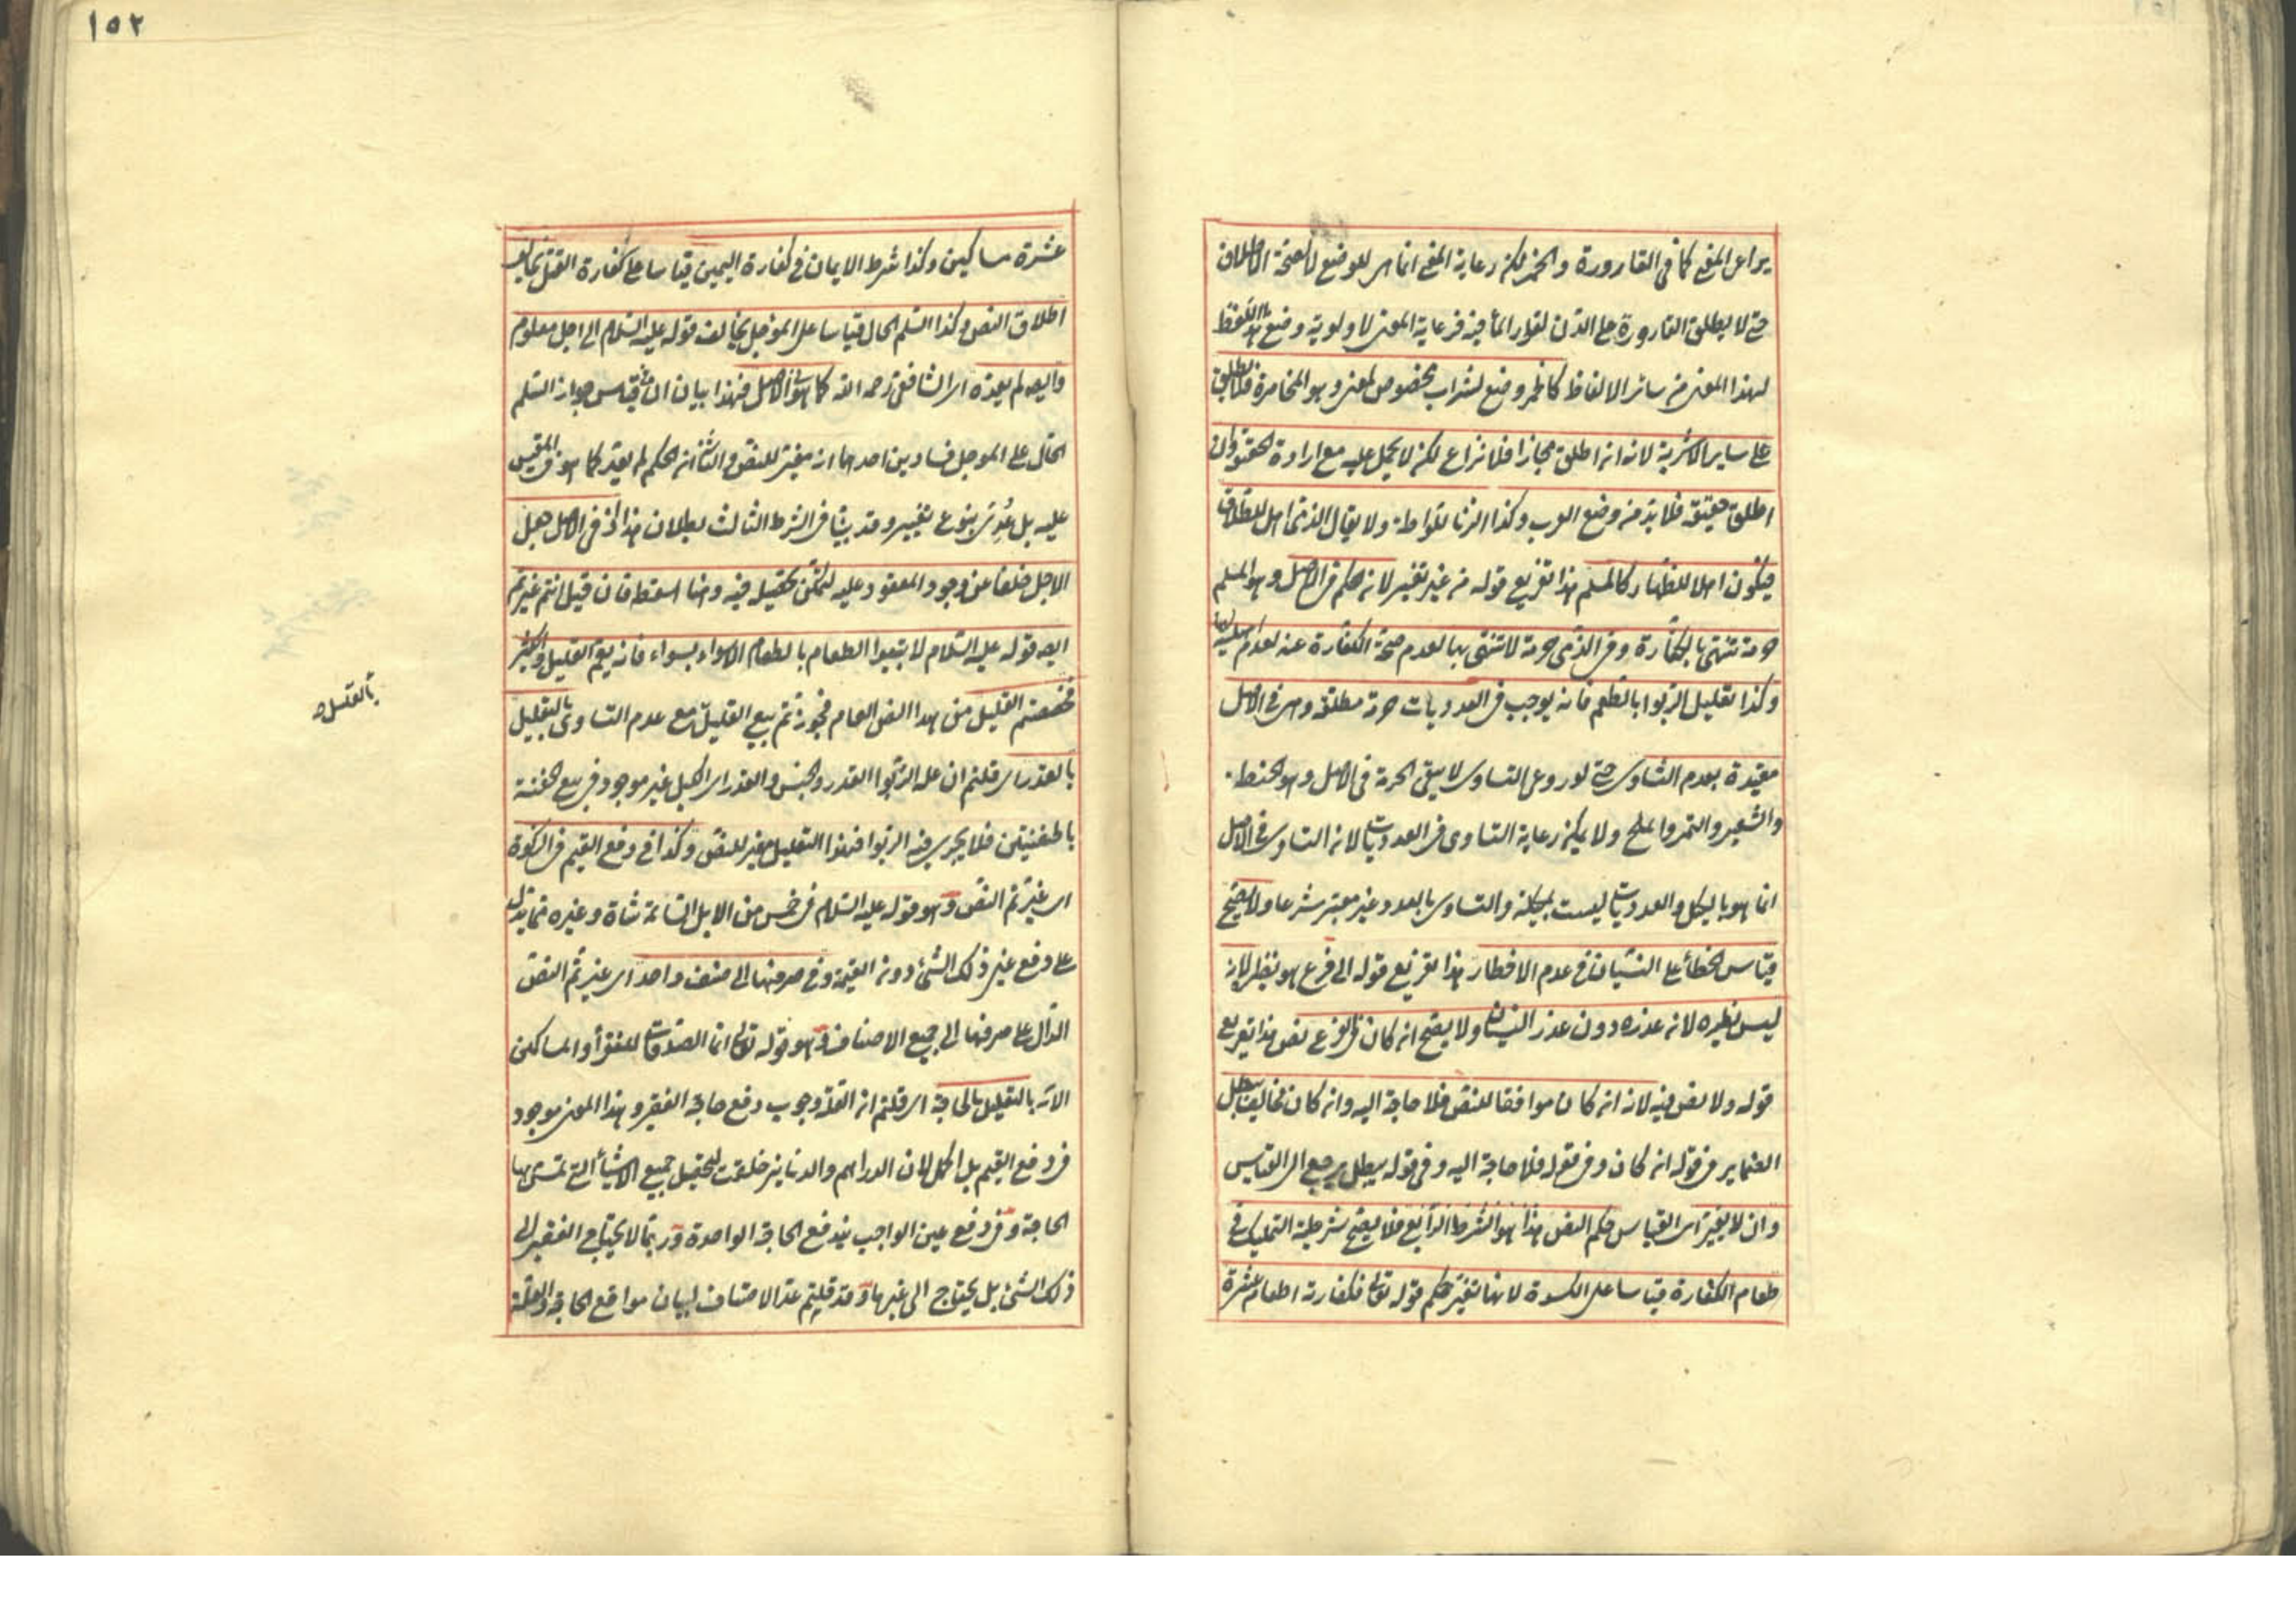 يراعى المعنى كما فى القارورة والخمر لكن رعاية المعنى انما هى للوضع لا لصحة الاطلاق
حتى لا يطلق القارورة على الدن لقرار الماء فيه فرعاية المعنى لاولوية وضع هذا اللفظ
لهذا المعنى من سائر الالفاظ كالخمر وضع لشراب مخصوص لمعنى وهو المخامرة فلا يطلق
على سائر الاشربة لانه ان اطلق مجازا فلا نزاع لكن لا يحمل عليه مع ارادة الحقيقة وان
اطلق حقيقة فلا بد من وضع العرب وكذا الزنا للواطة ولا يقال الذمى اهل للطلاق
فيكون اهلا للظهار كالمسلم هذا تفريع قوله من غير تغيير لان حكم فى الاصل وهو المسلم
حرمة تنتهى بالكفارة وفى الذمى حرمة لا تنتهى بها لعدم صحة الكفارة عنه لعدم اهليته لها
وكذا تعليل الربوا بالطعم فانه يوجب فى العدديات حرمة مطلقة وهى فى الاصل
مقيدة بعدم التساوى حتى لو روعى التساوى لا يبقى الحرمة فى الاصل وهو الحنطة
والشعير والتمر والملح ولا يمكن رعاية التساوى فى العدديات لان التساوى فى الاصل
انما هو بالكيل والعدديات ليست بمكيلة والتساوى بالعدد غير معتبر شرعا ولا يصح
قياس الخطأ على النسيان فى عدم الافطار هذا تفريع قوله الى فرع هو نظيره لانه
ليس نظيره لان عذره دون عذر النسيان ولا يصح ان كان فى الفرع نص هذا تفريع
قوله ولا نص فيه لانه ان كان موافقا للنص فلا حاجة اليه وان كان مخالفا يبطل
الضماير فى قوله ان كان وفى قوله فلا حاجة اليه وفى قوله يبطل يرجع الى القياس
وان لا يغير اى القياس حكم النص هذا هو الشرط الرابع فلا يصح شرطية التمليك فى
طعام الكفارة قياسا على الكسوة لانها تغير حكم قوله تعالى فكفارته اطعام عشرة
١٥٢
عشرة مساكين وكذا شرط الايمان فى كفارة اليمين قياسا على كفارة القتل يخالف
اطلاق النص وكذا السلم الحال قياسا على المؤجل يخالف قوله عليه السلام الى اجل معلوم
وايضا لم يعده اى الشافعى رحمه الله كما هو فى الاصل فهذا بيان ان فى قياس جواز السلم
الحال على المؤجل فسادين احدهما انه مغير للنص والثانى ان الحكم لم يعد كما هو فى المقيس
عليه بل عدى بنوع تغيير وقد بينا فى الشرط الثالث بطلان هذا اذ فى الاصل جعل
الاجل خلفا عن وجود المعقود عليه ليمكن تحصيله فيه وهنا اسقط فان قيل انتم غيرتم
ايضا قوله عليه السلام لا تبيعوا الطعام بالطعام الا سواء بسواء فانه يعم القليل والكثير
فخصصتم القليل من هذا النص العام فجوزتم بيع القليل مع عدم التساوى بالتعليل
بالقليل
بالقدر اى قلتم ان علة الربوا القدر والجنس والقدر اى الكيل غير موجود فى بيع الحفنة
بالحفنتين فلا يجرى فيه الربوا فهذا التعليل مغير للنص وكذا فى دفع القيم فى الزكوة
اى غيرتم النص وهو قوله عليه السلام فى خمس من الابل السائمة شاة وغيره مما يدل
على دفع عين ذلك الشئ دون القيمة وفى صرفها الى صنف واحد اى غيرتم النص
الدال على صرفها الى جميع الاصناف وهو قوله تعالى انما الصدقات للفقرأ والمساكين
الآية بالتعليل بالحاجة اى قلتم ان العلة وجوب دفع حاجة الفقير وهذا المعنى موجود
فى دفع القيم بل اكمل لان الدراهم والدنانير خلقت لتحصيل جميع الاشيأ التى تمس بها
الحاجة وفى دفع عين الواجب يندفع الحاجة الواحدة وربما لا يحتاج الفقير الى
ذلك الشئ بل يحتاج الى غيرها وقد قلتم عد الاصناف لبيان مواقع الحاجة والعلة